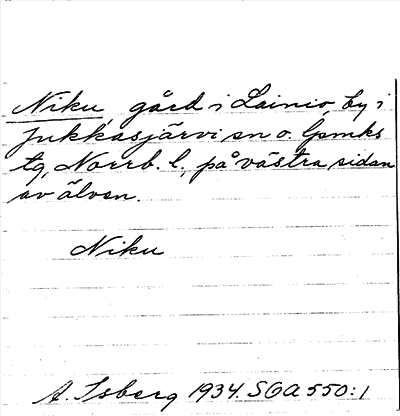 Niku, gård i Lainio, by i
Jukkasjärvi sn o. lpmks
tg, Norrb. l., på västra sidan
av älven.
Niku
A. Isberg 1934. SOA 550:1